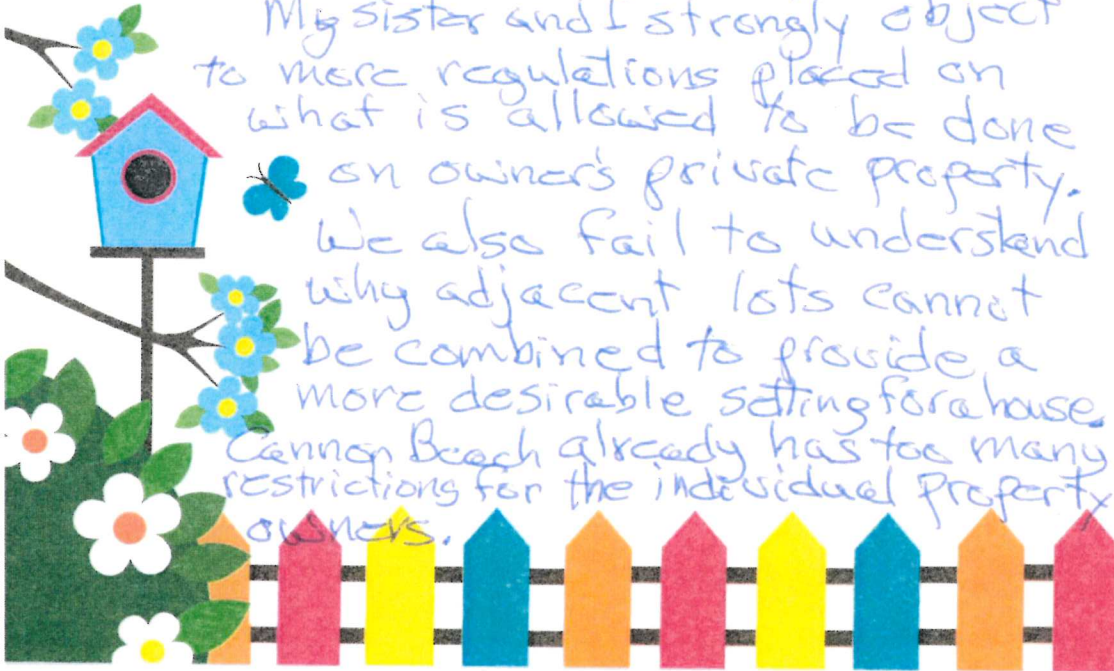 My sister and I strongly object
to more regulations placed on
what is allowed to be done
on owner's private property.
We also fail to understand
why adjacent lots cannot
be combined to provide a
more desirable setting for a house.
Cannon Beach already has too many
restrictions for the individual property
owners.